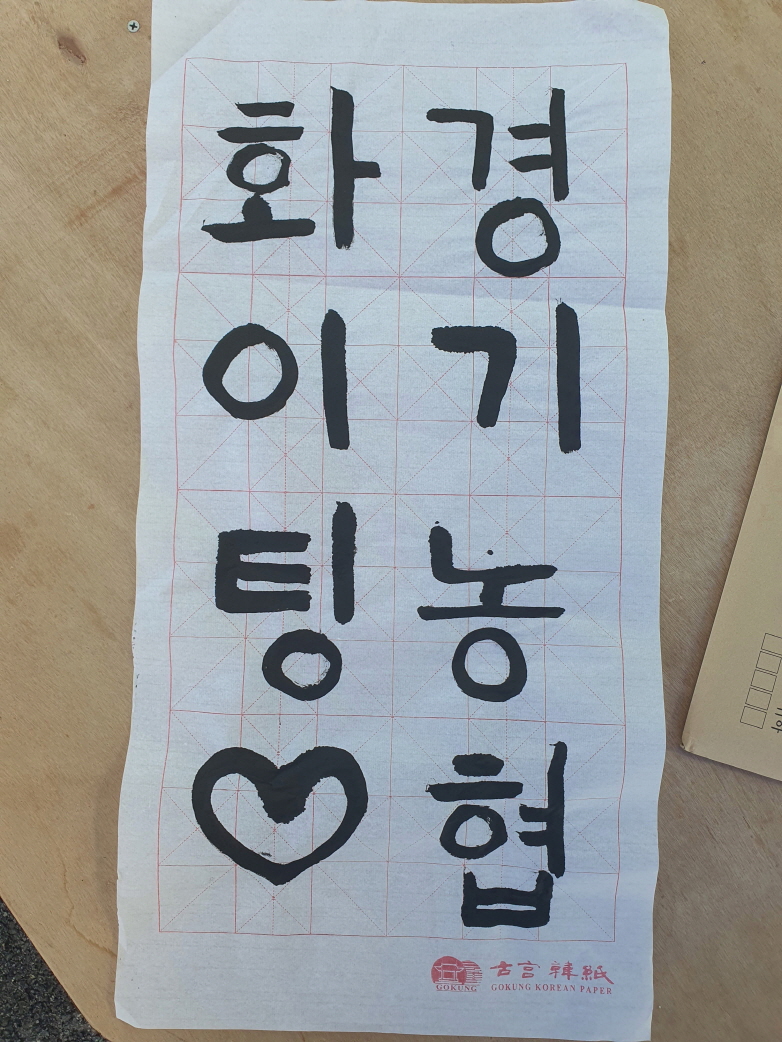 경기농협
화이팅♡
古宮韓紙
GOKUNG
GOKUNG KOREAN PAPER